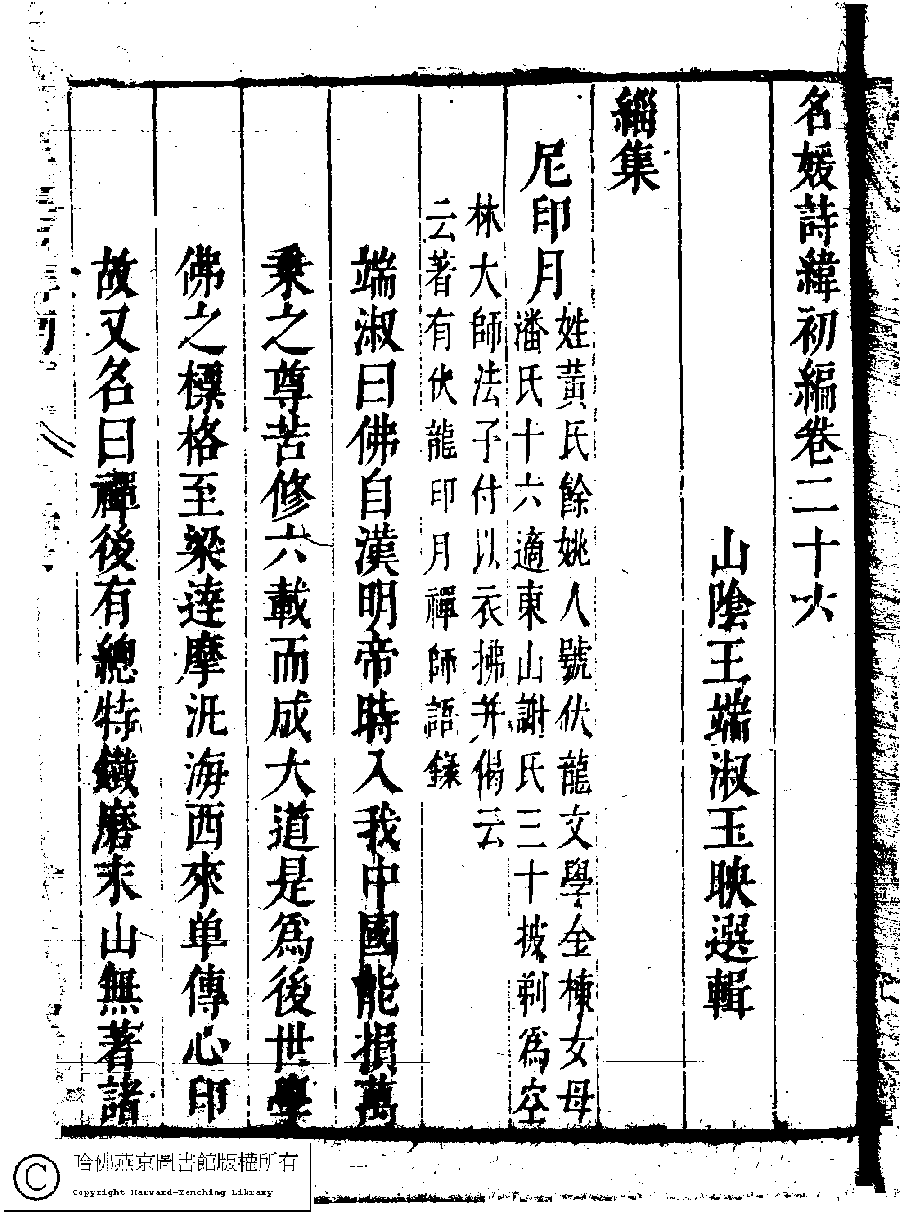 名媛詩緯初編卷二十六
山陰王端淑玉映選輯
緇集
尼印月
姓黃氏餘姚人號伏龍文學金棟女母
潘氏十六適東山謝氏三十披剃爲空
林大師法子付以衣拂并偈云
云著有伏龍印月禪師語錄
端淑曰佛自漢明帝時入我中國能損萬
乗之尊苦修六載而成大道是爲後世學
佛之標格至梁達摩汎海西來单傳心印
故又名曰禪後有總特鐡磨末山無著諸
哈佛燕京圖書館版權所有
Copyright Harvard-Yenching Library